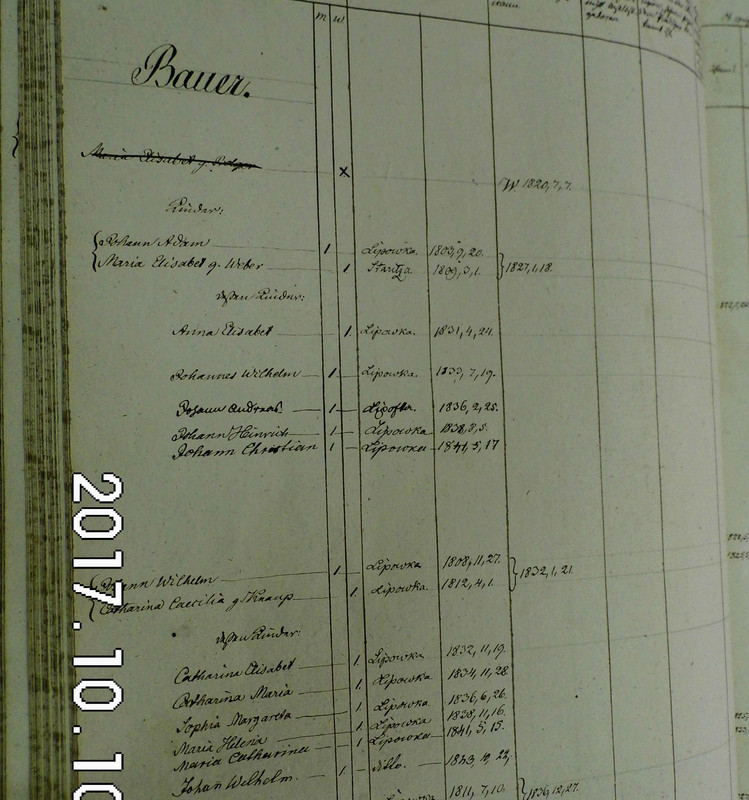 m w
Bauer.
Maria Elisabet g.
x W. 1820, 7, 7.
Kinder:
Johann Adam 1 Lipowka. 1803, 9, 20.
Maria Elisabet g. Weber 1 Staritza 1809, 3, 1. 1827, 1, 18.
dessen Kinder:
Anna Elisabet 1. Lipowka. 1831, 4, 24.
Johannes Wilhelm 1 Lipowka. 1833, 7, 19.
Johann Andreas. 1 Lipofka. 1836, 2, 25.
Johann Hinrich 1 Lipowka 1838, 8, 5.
Johann Christian 1 Lipowka 1841, 5, 17
Johann Wilhelm 1 Lipowka 1808, 11, 27. 1832, 1, 21.
Catharina Caecilia g. Knaup 1. Lipowka. 1812, 4, 1.
dessen Kinder:
Catharina Elisabet 1 Lipowka 1832, 11, 19.
Catharina Maria 1 Lipowka 1834, 11, 28.
Sophia Margareta 1. Lipowka 1836, 6, 26.
Maria Helena 1 Lipowka 1838, 11, 16.
Maria Catharina 1 Lipowka 1841, 5, 15.
Johan Wilhelm. 1 ditto. 1843, 10, 22.
1811, 7, 10. 1836, 12, 27.
2017.10.10